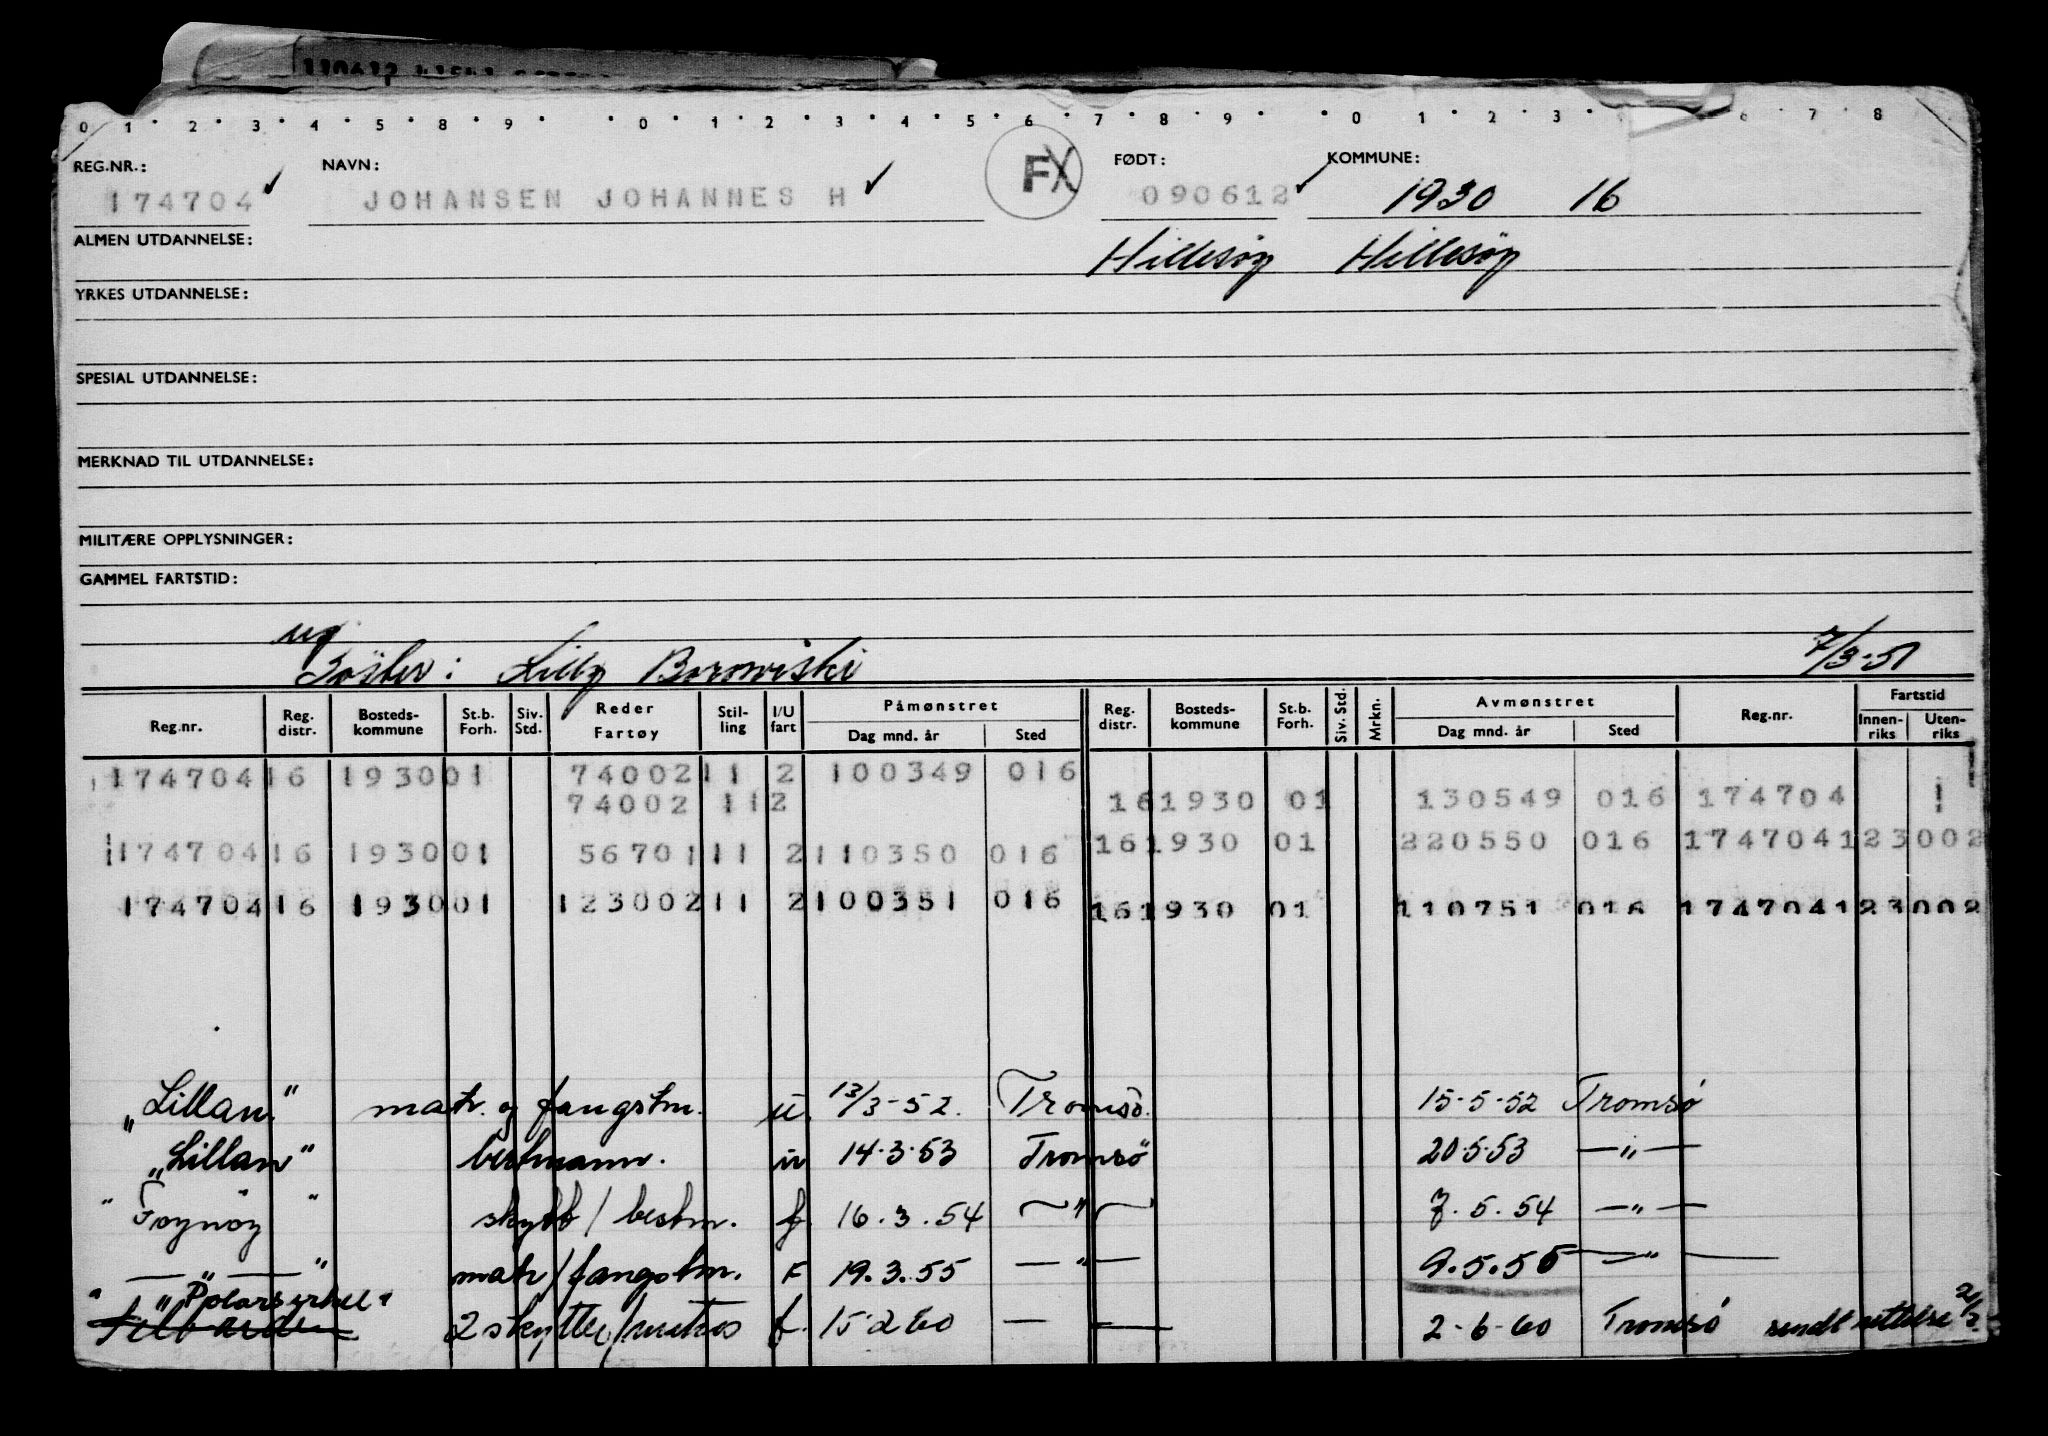 0 1 2 3 4 5 8 9 0 1 2 3 4 5 6 7 8 9 0 1 2 3 6 7 8
REG.NR.: NAVN: FX FØDT: KOMMUNE:
174704 JOHANSEN JOHANNES H 090612 1930 16
ALMEN UTDANNELSE: Hillesøy Hillesøy
YRKES UTDANNELSE:
SPESIAL UTDANNELSE:
MERKNAD TIL UTDANNELSE:
MILITÆRE OPPLYSNINGER:
GAMMEL FARTSTID:
ug
Søster: Lilly Borowiski 7/3-51
Reg.nr. Reg. distr. Bosteds-kommune St.b. Forh. Siv. Std. Reder Fartøy Stil-ling I/U fart Påmønstret Dag mnd. år Sted Reg. distr. Bosteds-kommune St.b. Forh. Siv. Std. Mrkn. Avmønstret Dag mnd. år Sted Reg.nr. Fartstid Innen-riks Uten-riks
174704 16 1930 01 74002 11 2 100349 016
74002 11 2 16 1930 01 130549 016 174704
174704 16 1930 01 56701 11 2 110350 016 16 1930 01 220550 016 174704 123002
174704 16 1930 01 123002 11 2 100351 016 16 1930 01 110751 016 174704 123002
"Lillan" matr. og fangstm. u. 13/3-52. Tromsö. 15-5-52 Tromsö
"Lillan" bestmann. u 14.3.53 Tromsö 20.5.53 —"—
"Foynøy" skytt/bestm. f. 16.3.54 —"— 7.5.54 —"—
—"— matr/fangstm. F 19.3.55 —"— 9.5.55 —"—
"Polarsirkel"
2 skytter/matros f. 15 2 60 — — 2-6-60 Tromsö sendt rettelse